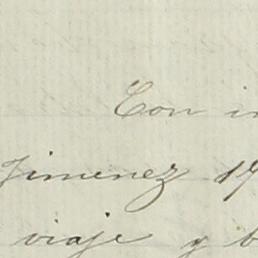 Con
Jimenez 19
viaje y b